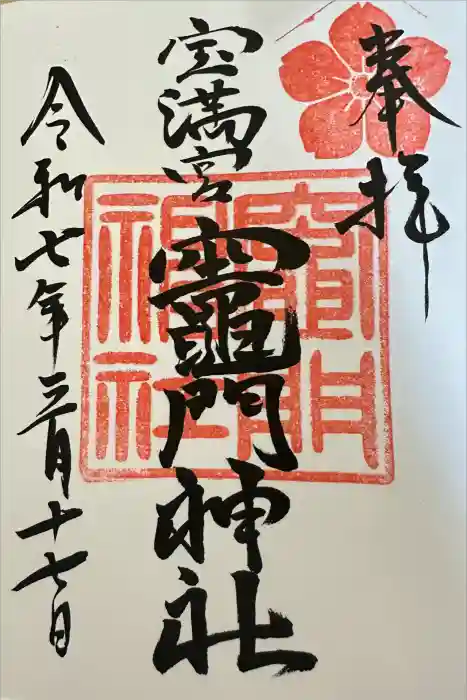 奉拝
宝満宮
竈門神社
令和七年三月十七日
竈門神社